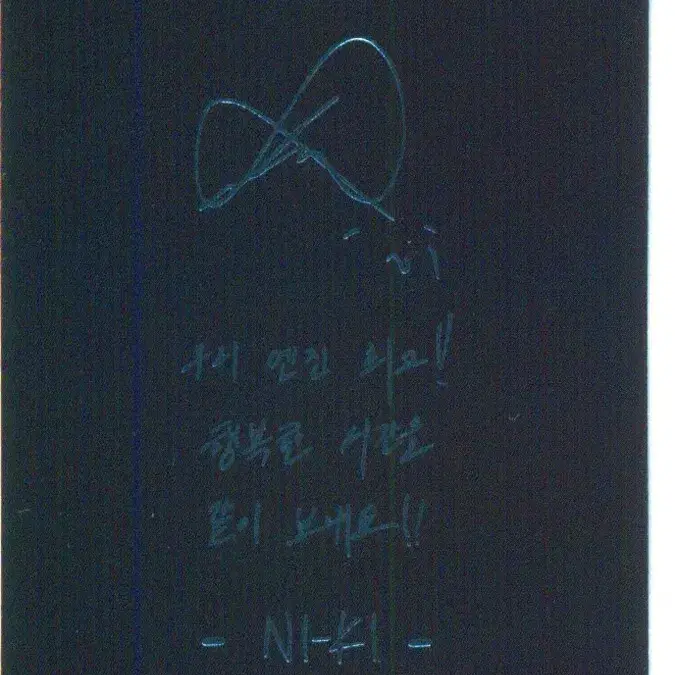 우리 엔진 최고!!
행복한 시간을
같이 보내요!!
- NI-KI -